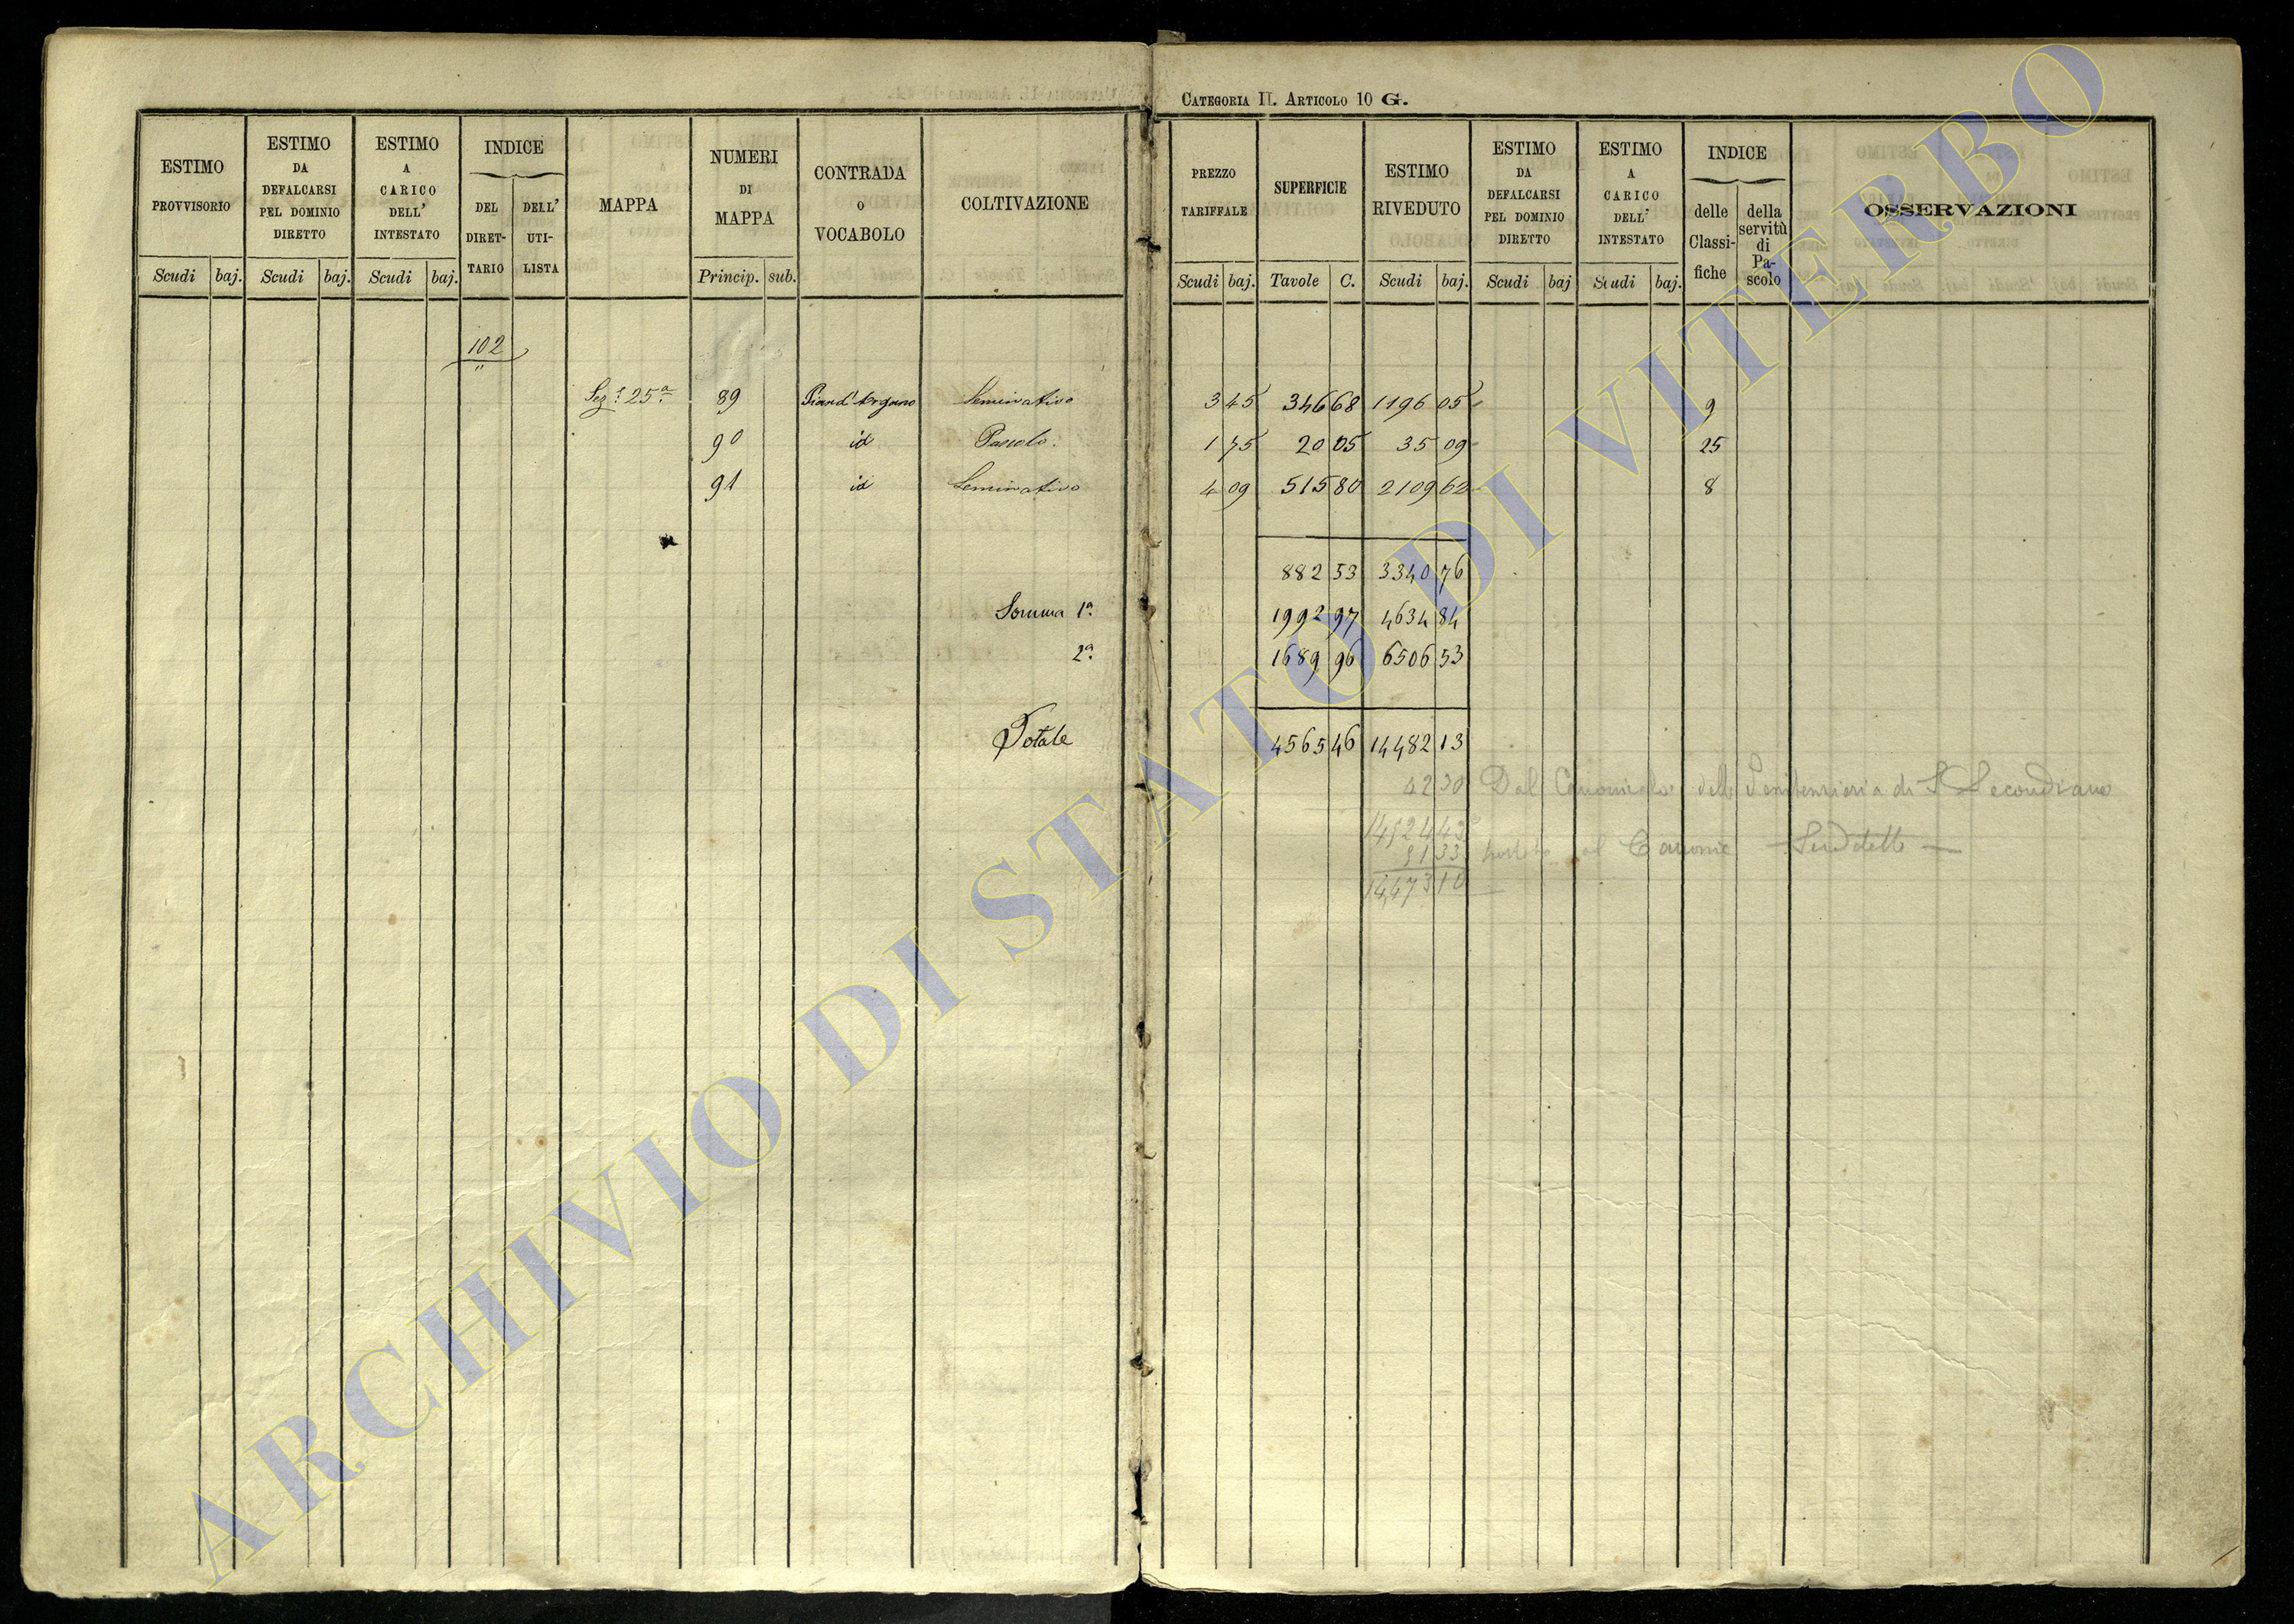 CATEGORIA II. ARTICOLO 10 G.
ESTIMO PROVVISORIO
Scudi baj.
ESTIMO DA DEFALCARSI PEL DOMINIO DIRETTO
Scudi baj.
ESTIMO A CARICO DELL' INTESTATO
Scudi baj.
INDICE
DEL DIRET-TARIO
DELL' UTI-LISTA
MAPPA
NUMERI DI MAPPA
Princip. sub.
CONTRADA O VOCABOLO
COLTIVAZIONE
PREZZO TARIFFALE
Scudi baj.
SUPERFICIE
Tavole C.
ESTIMO RIVEDUTO
Scudi baj.
ESTIMO DA DEFALCARSI PEL DOMINIO DIRETTO
Scudi baj
ESTIMO A CARICO DELL' INTESTATO
Scudi baj.
INDICE
delle Classi-fiche
della servitù di Pa-scolo
OSSERVAZIONI
102
Sez.e 25a 89 Seminativo 3 45 346 68 1196 05 9
90 id Pascolo. 1 75 20 05 35 09 25
91 id Seminativo 4 09 515 80 2109 62 8
882 53 3340 76
Somma 1a 1992 97 4634 84
2a 1689 96 6506 53
Totale 4565 46 14482 13
42 30 Dal Canonicato della Penitenzieria di S Secondiano
14524 43
51 33 al Suddetto
14,473 10
ARCHIVIO DI STATO DI VITERBO